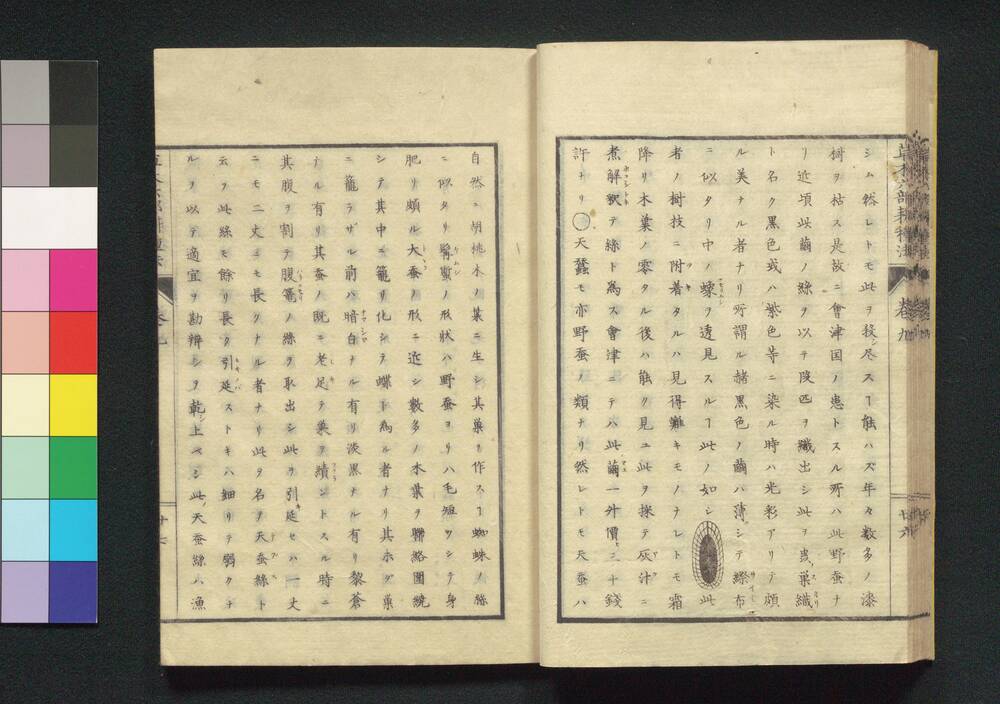 シム然レトモ此ヲ殺シ尽スヿ能ハズ年々数多ノ漆
樹ヲ枯ス是故ニ會津国ノ患トスル所ハ此野蚕ナ
リ近頃此繭ノ絲ヲ以テ段匹ヲ織出シ此ヲ巣織
ト名ク黒色或ハ紫色等ニ染ル時ハ光彩アリテ頗
ル美ナル者ナリ所謂ル赭黒色ノ繭ハ薄シテ布
ニ似タリ中ノ蝀ヲ透見スルヿ此ノ如シ 此
者ノ樹技ニ附着タルハ見得難キモノナレトモ霜
降リ木葉ノ零タル後ハ能ク見ユ此ヲ採テ灰汁ニ
煮解釈テ絲ト為ス會津ニテハ此繭一升價ヒ二十錢
許ナリ○天蠶モ亦野蚕ノ類ナリ然レトモ天蚕ハ
草木六部耕種法 卷九
自然ニ胡桃木ノ葉ニ生シ其巣ヲ作スヿ蜘蛛ノ絲
ニ似タリ其形状ハ野蚕ヨリハ毛短クシテ身
肥リ頗ル大蚕ノ形ニ近シ數多ノ木葉ヲ聯絡圍繞
シテ其中ニ籠リ化シテ蝶ト為ル者ナリ其未ダ巣
ニ籠ラザル前ハ暗白ナル有リ淡黒ナル有リ黎蒼
ナル有リ其蚕ノ既ニ老足テ巣ヲ績ントスル時ニ
其腹ヲ割テ腹ノ絲ヲ取出シ此ヲ引延セハ一丈
ニモ二丈ニモ長クナル者ナリ此ヲ名テ天蚕絲ト
云フ此絲モ餘リ長ク引延ストキハ細リテ弱クナ
ルヲ以テ適宜ヲ勘辨シテ乾シ上ベシ此ノ天蚕絲ハ漁